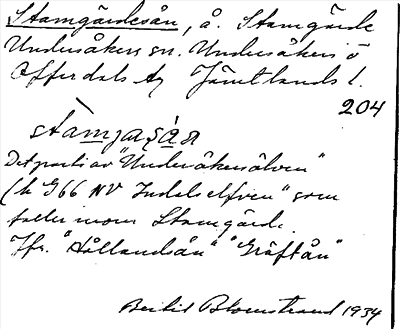 Stamgärdesån, å. Stamgärde
Undersåkers sn. Undersåkers o
Offerdals tg Jämtlands l.
204
stàmjaṣä̀n
Det parti av "Undersåkersälven"
(k G66 NV Indalselfven" som
faller inom Stamgärde.
Jfr. "Hållandsån" "Gräftån"
Bertil Blomstrand 1934